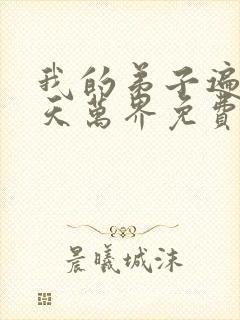 我的弟子遍
天萬界免費
晨曦城沫